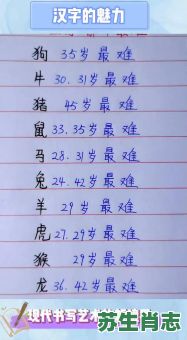 汉字的魅力
最难
狗 35岁最难
牛 30.31岁最难
猪 45岁最难
鼠 33.35岁最难
马 28.31岁最难
兔 24.42岁最难
羊 29岁最难
虎 27.29岁最难
猴 29岁最难
龙 36.42岁最难
现代书写艺术
苏生肖志